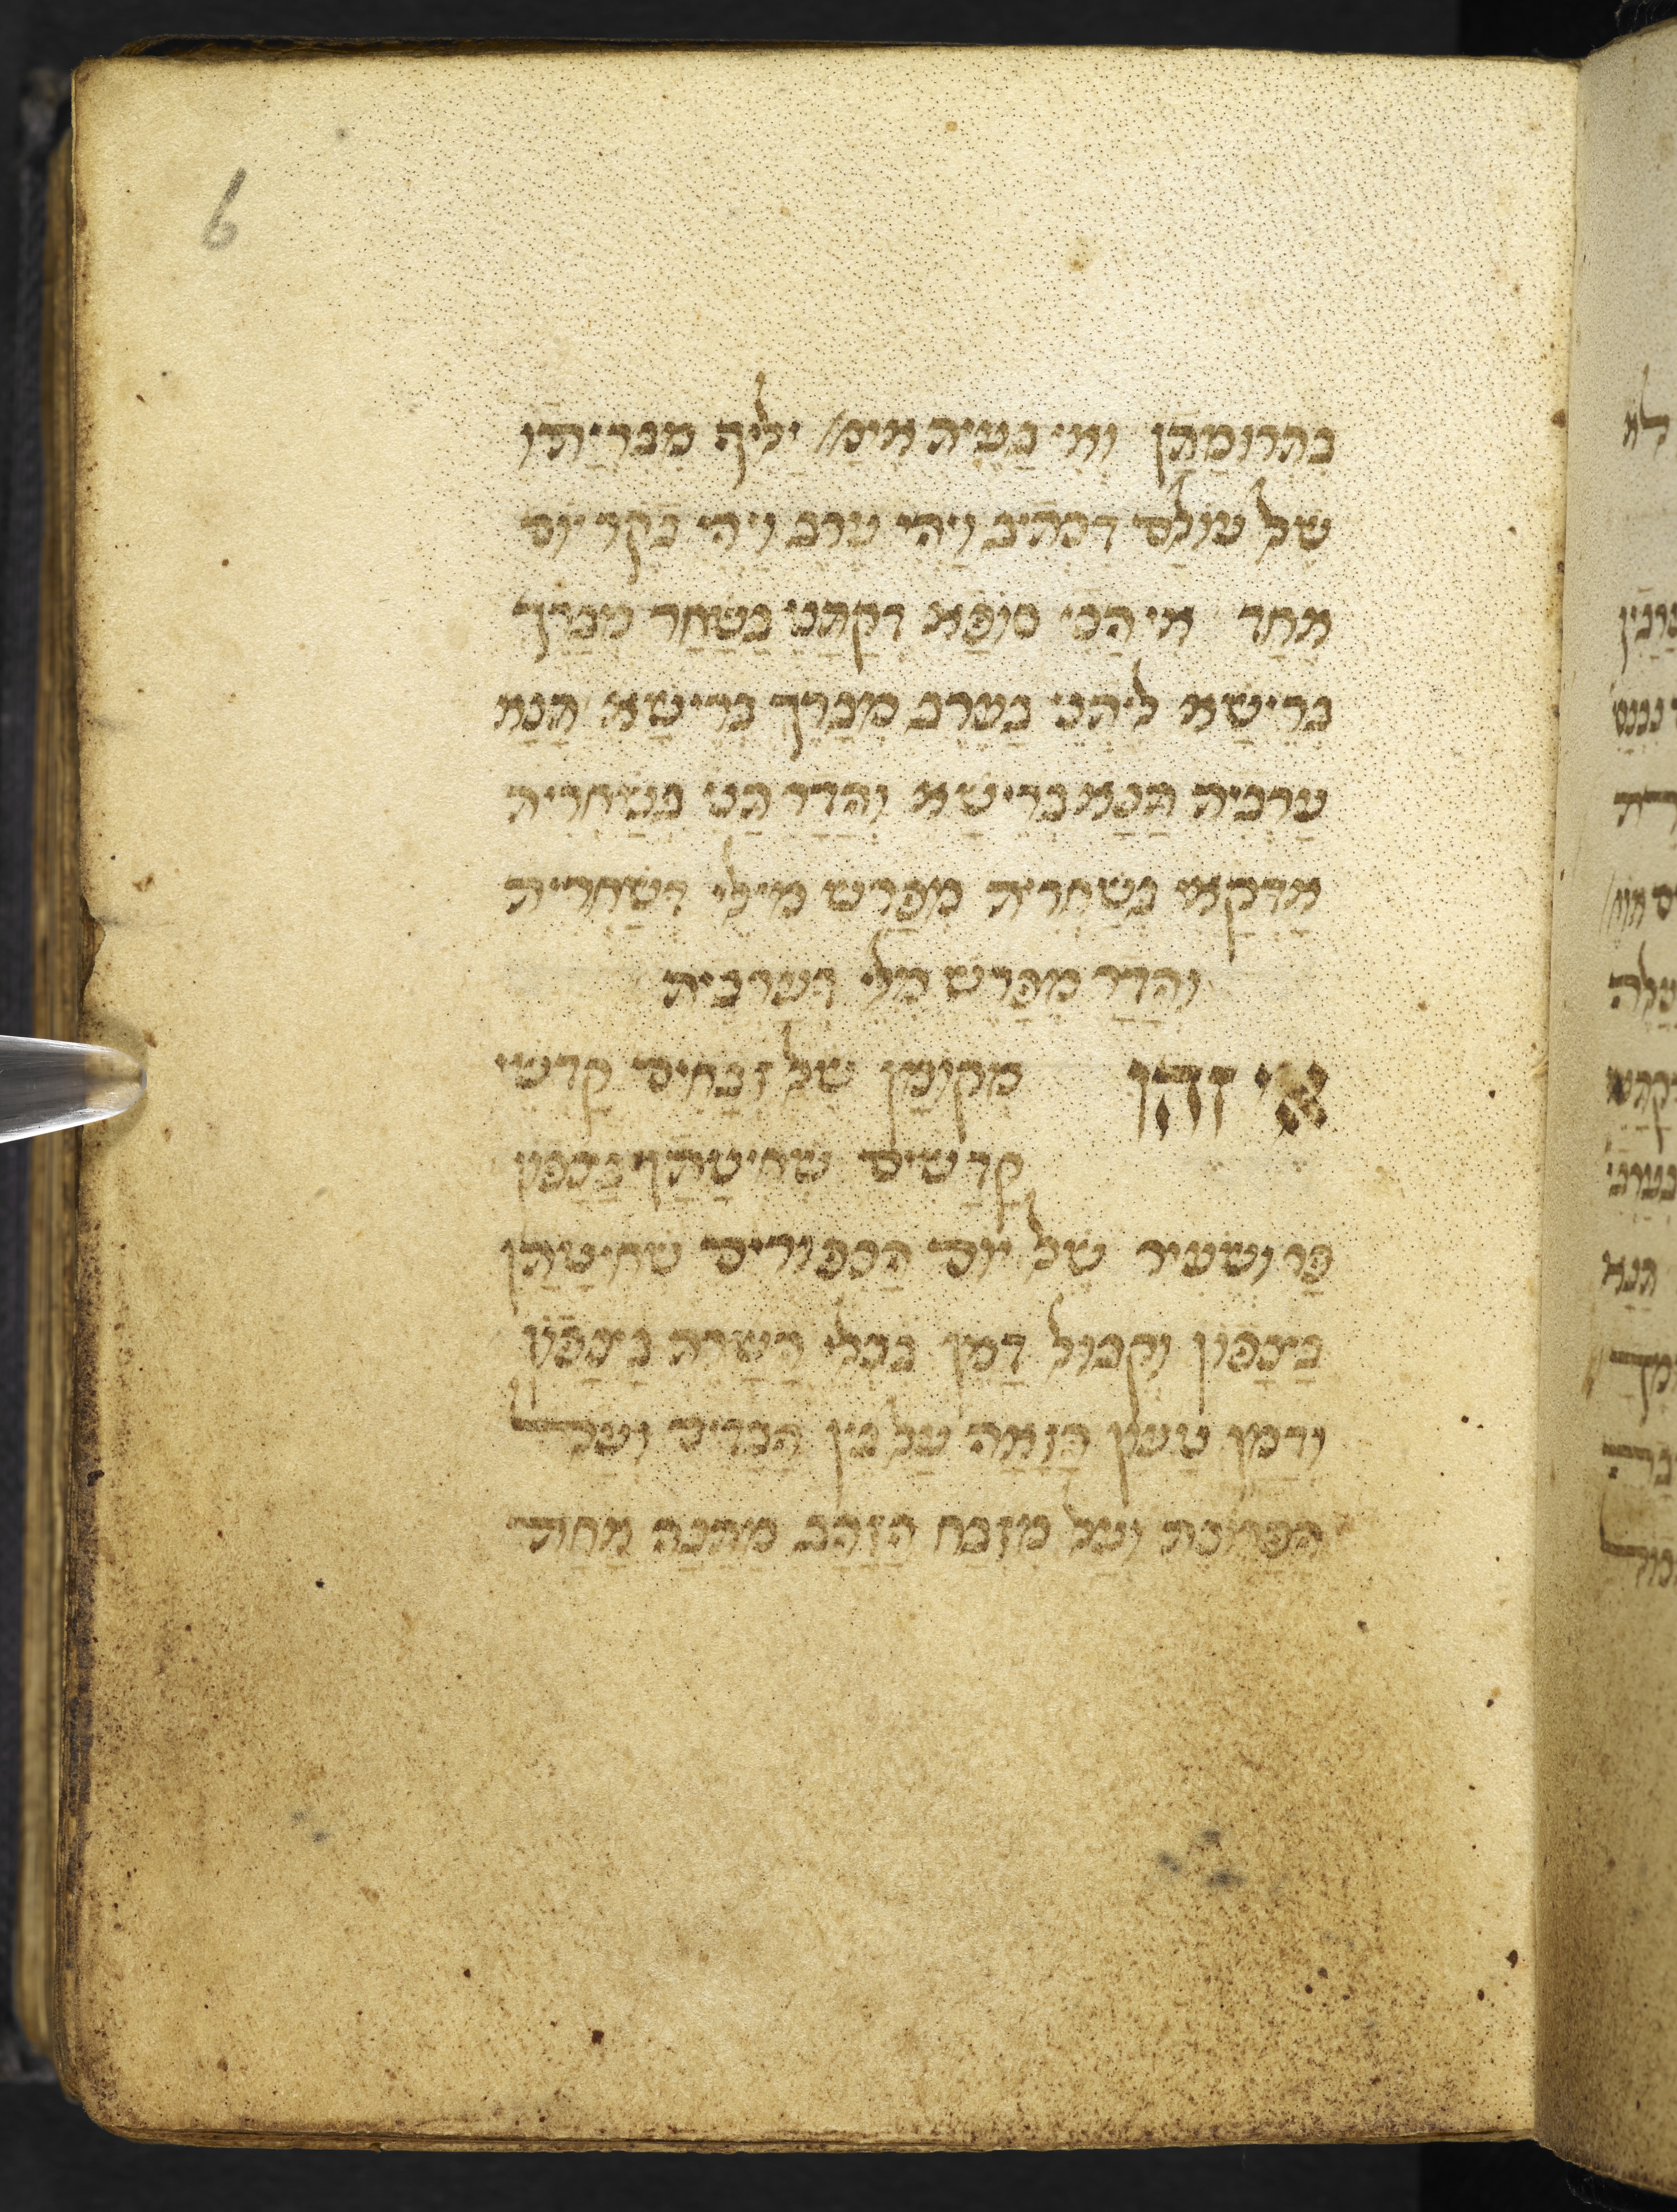 6
בתרומתן ואי בעית אימ/ יליף מברייתו
של עולם דכתיב ויהי ערב ויהי בקר יום
אחד אי הכי סיפא דקתני בשחר מברך
ברישא ליתני בערב מברך ברישא תנא
ערבית תנא ברישא והדר תני בשחרית
אדקאי בשחרית מפרש מילי דשחרית
והדר מפרש מלי דערבית
איזהו מקומן של זבחים קדשי
קדשים שחיטתן בצפון
פר ושעיר של יום הכפורים שחיטתן
בצפון וקבול דמן בכלי השרת בצפון
ודמן טעון הזאה על בין הבדים ועל
הפרוכת ועל מזבח הזהב מתנה אחת